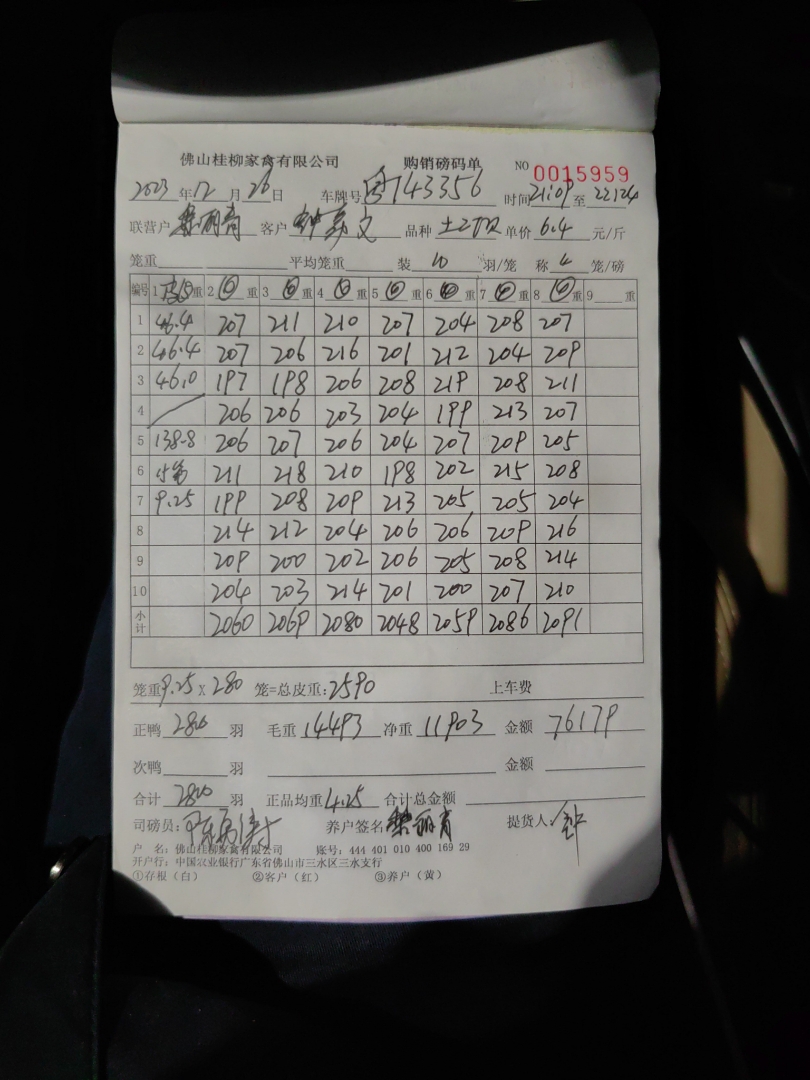 佛山桂柳家禽有限公司 购销磅码单 NO 0015959
2023年12月26日 车牌号 143356 时间21:09至22:24
联营户 客户 品种 单价6.4元/斤
笼重 平均笼重 装10羽/笼 称4笼/磅
编号 1 重 2 重 3 重 4 重 5 重 6 重 7 重 8 重 9 重
1 46.4 207 211 210 207 204 208 207
2 46.4 207 206 216 201 212 204 209
3 46.0 197 198 206 208 219 208 211
4 206 206 203 204 199 213 207
5 138.8 206 207 206 204 207 209 205
6 15笼 211 218 210 198 202 215 208
7 9.25 199 208 209 213 205 205 204
8 214 212 204 206 206 209 216
9 209 200 202 206 205 208 214
10 204 203 214 201 200 207 210
小计 2060 2069 2080 2048 2059 2086 2091
笼重9.25×280笼=总皮重:2590 上车费
正鸭2800羽 毛重14493 净重11903 金额76179
次鸭 羽 金额
合计2800羽 正品均重4.25 合计总金额
司磅员: 养户签名 提货人:钟
户 名:佛山桂柳家禽有限公司 账号:444 401 010 400 169 29
开户行:中国农业银行广东省佛山市三水区三水支行
①存根(白) ②客户(红) ③养户(黄)